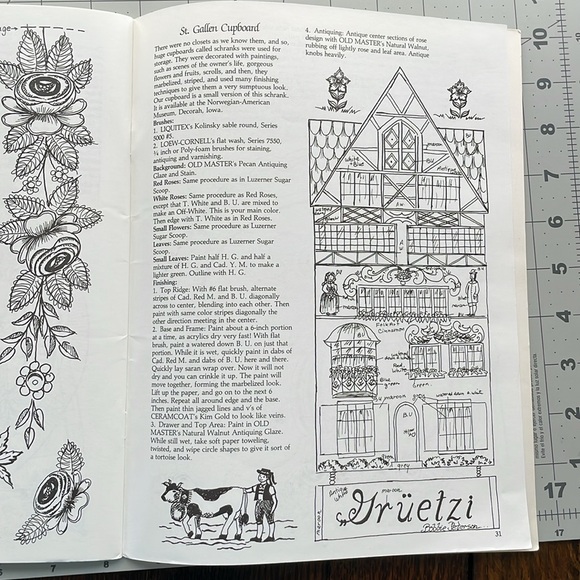 St. Gallen Cupboard
There were no closets as we know them, and so,
huge cupboards called schranks were used for
storage. They were decorated with paintings,
such as scenes of the owner's life, gorgeous
flowers and fruits, scrolls, and then, they
marbelized, striped, and used many finishing
techniques to give them a very sumptuous look.
Our cupboard is a small version of this schrank.
It is available at the Norwegian-American
Museum, Decorah, Iowa.
Brushes:
1. LIQUITEX's Kolinsky sable round, Series
5000 #5.
2. LOEW-CORNELL's flat wash, Series 7550,
¾ inch or Poly-foam brushes for staining,
antiquing and varnishing.
Background: OLD MASTER's Pecan Antiquing
Glaze and Stain.
Red Roses: Same procedure as in Luzerner Sugar
Scoop.
White Roses: Same procedure as Red Roses,
except that T. White and B. U. are mixed to
make an Off-White. This is your main color.
Then edge with T. White as in Red Roses.
Small Flowers: Same procedure as Luzerner
Sugar Scoop.
Leaves: Same procedure as Luzerner Sugar
Scoop.
Small Leaves: Paint half H. G. and half a
mixture of H. G. and Cad. Y. M. to make a
lighter green. Outline with H. G.
Finishing:
1. Top Ridge: With #6 flat brush, alternate
stripes of Cad. Red M. and B. U. diagonally
across to center, blending into each other. Then
paint with same color stripes diagonally the
other direction meeting in the center.
2. Base and Frame: Paint about a 6-inch portion
at a time, as acrylics dry very fast! With flat
brush, paint a watered down B. U. on just that
portion. While it is wet, quickly paint in dabs of
Cad. Red M. and dabs of B. U. here and there.
Quickly lay saran wrap over. Now it will not
dry and you can crinkle it up. The paint will
move together, forming the marbelized look.
Lift up the paper, and go on to the next 6
inches. Repeat all around edge and the base.
Then paint thin jagged lines and v's of
CERAMCOAT's Kim Gold to look like veins.
3. Drawer and Top Area: Paint in OLD
MASTER's Natural Walnut Antiquing Glaze.
While still wet, take soft paper toweling,
twisted, and wipe circle shapes to give it sort of
a tortoise look.
4. Antiquing: Antique center sections of rose
design with OLD MASTER's Natural Walnut,
rubbing off lightly rose and leaf area. Antique
knobs heavily.
maroon
white
+ Blue
BU
BU
Folk Art
Cinnamon
BU
Red
White
Blue
green
Green
BU
maroon
B.U
grey
maroon
maroon
"Grüetzi
31
10
9
8
7
6
5
4
3
2
1
17
6
7
8